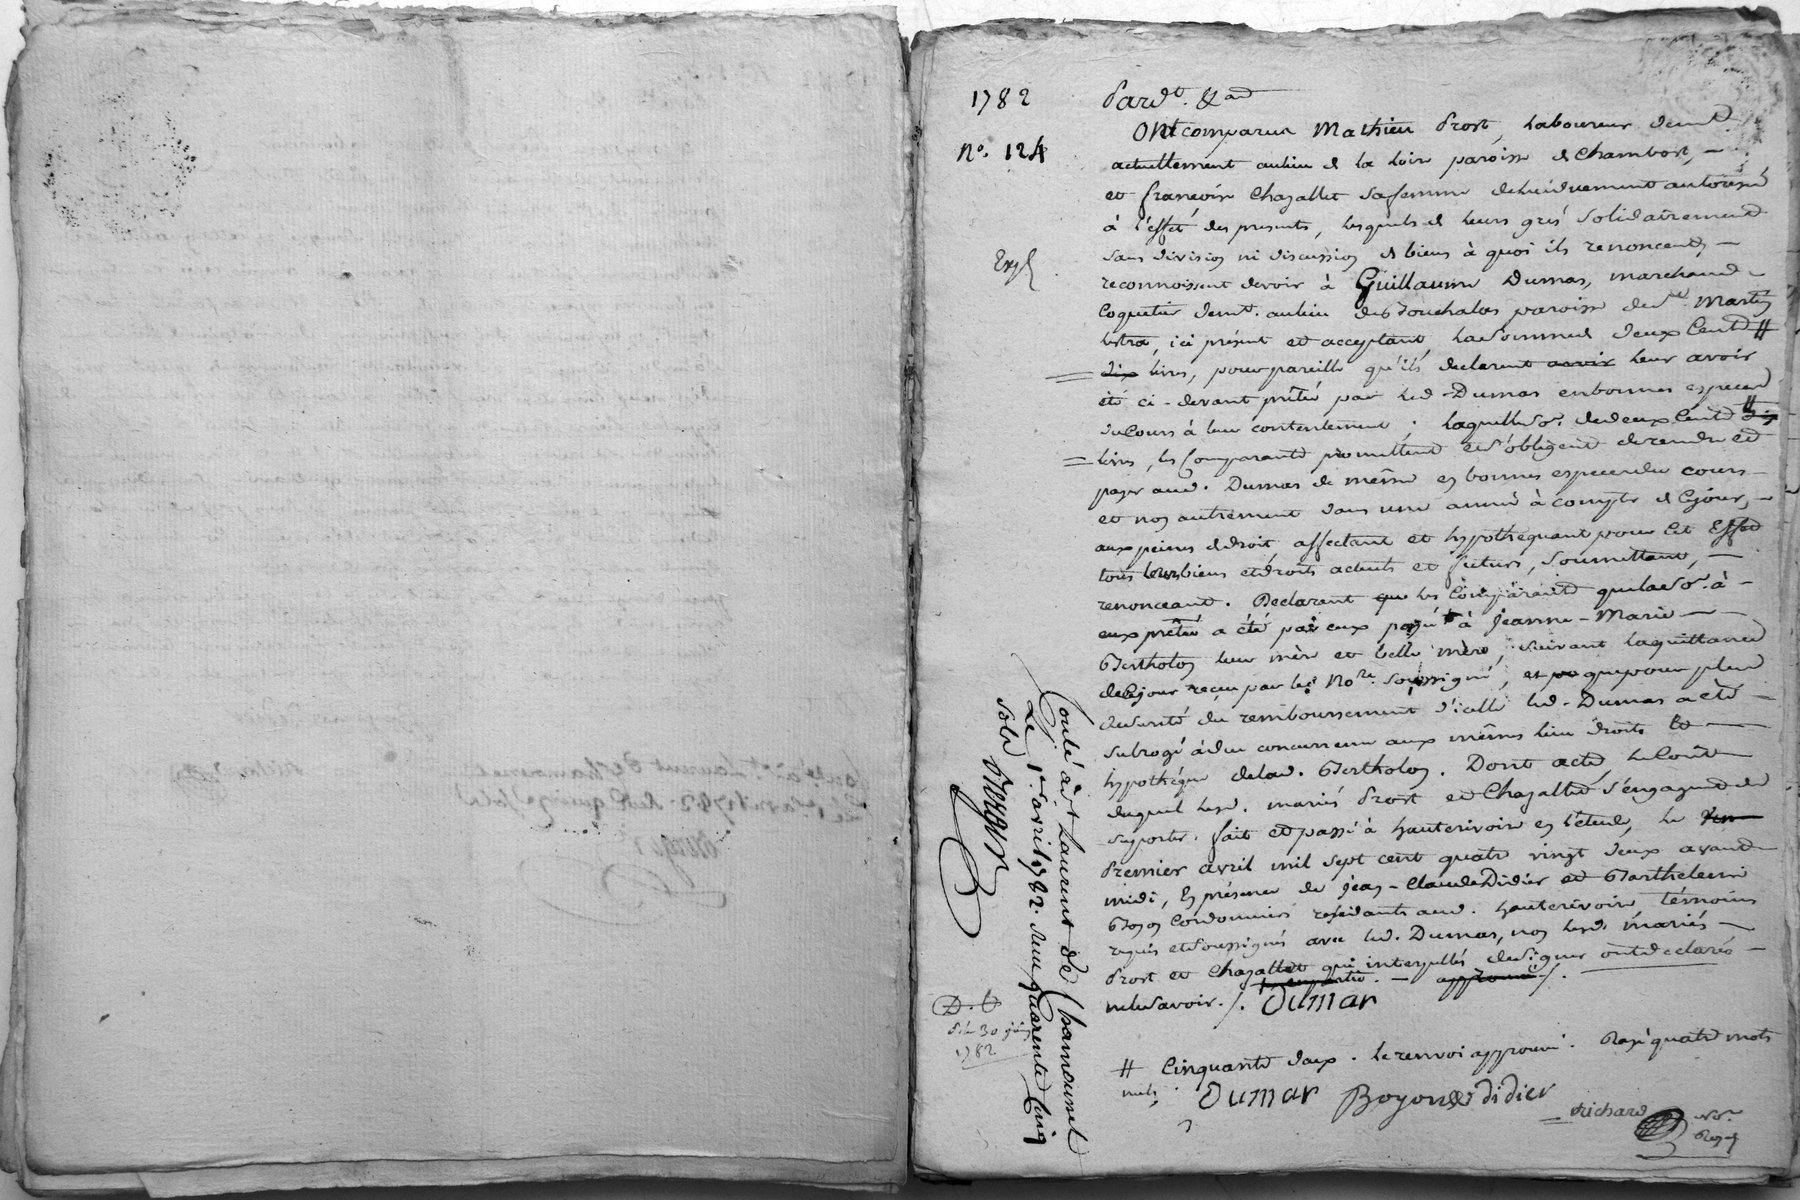 1782
N°. 124
Expé
Pardt. &a
Ont comparu Mathieu Prost, laboureur demt.
actuellement au lieu de la Loire paroisse de Chambost,
et françoise Chazallet sa femme de lui duement autorisée
à l'effet des presents, lesquels de leurs gré solidairement
sans division ni discussion de biens à quoi ils renoncent,
reconnoissent devoir à Guillaume Dumas, marchand
Coquetier demt. au lieu des paroisse de St. Martin
lestra, ici présent et acceptant, la somme de deux Cent #
dix livres, pour pareille qu'ils declarent avoir leur avoir
été ci-devant prêtée par led. Dumas en bonnes especes
du Cours à leur contentement. laquelle se. de deux Cent # dix
livres, les Comparants promettent et s'obligent de rendre et
payer aud. Dumas de même en bonnes especes du cours
et non autrement dans une année à compter de Cejour,
aux peines de droit, affectant et hypothequant pour Cet Effet
tous leurs biens et droits actuels et futurs, soumettant,
renonceant. Declarant que les Comparants que lade se. à
eux prêtée a été par eux payée à Jeanne-Marie
Bertholon leur mère et belle mère, suivant la quittance
de Cejour reçue par le Nore. soussigné, et que pour plus
de sureté du remboursement d'icelle led. Dumas a été
subrogé à due concurrence aux mêmes lieu droits et
hypothéque de lad. Bertholon. Dont acte le Coût
duquel lesd. mariés Prost et Chazallet s'engagent de
suporter. fait et passé à hauterivoire en l'étude, le
Premier avril mil sept cent quatre vingt deux avant
midi, En présence de Jean-Claude Didier et Barthelemi
Boyon Cordonniers residants aud. hauterivoire témoins
requis et soussignés avec led. Dumas, non lesd. mariés
Prost et Chazallet qui interpellés de signer ont declaré
ne le savoir. /. Dumar
# Cinquante deux. le renvoi approuvé. Rayé quatre mots
nuls.
Dumar Boyon Didier
Richard
Nore.
Royal
Controlé à St Laurent de Chamousset
Le 1er avril 1782. Reçu quarente Cinq
sols
D. E
30 juin
1782